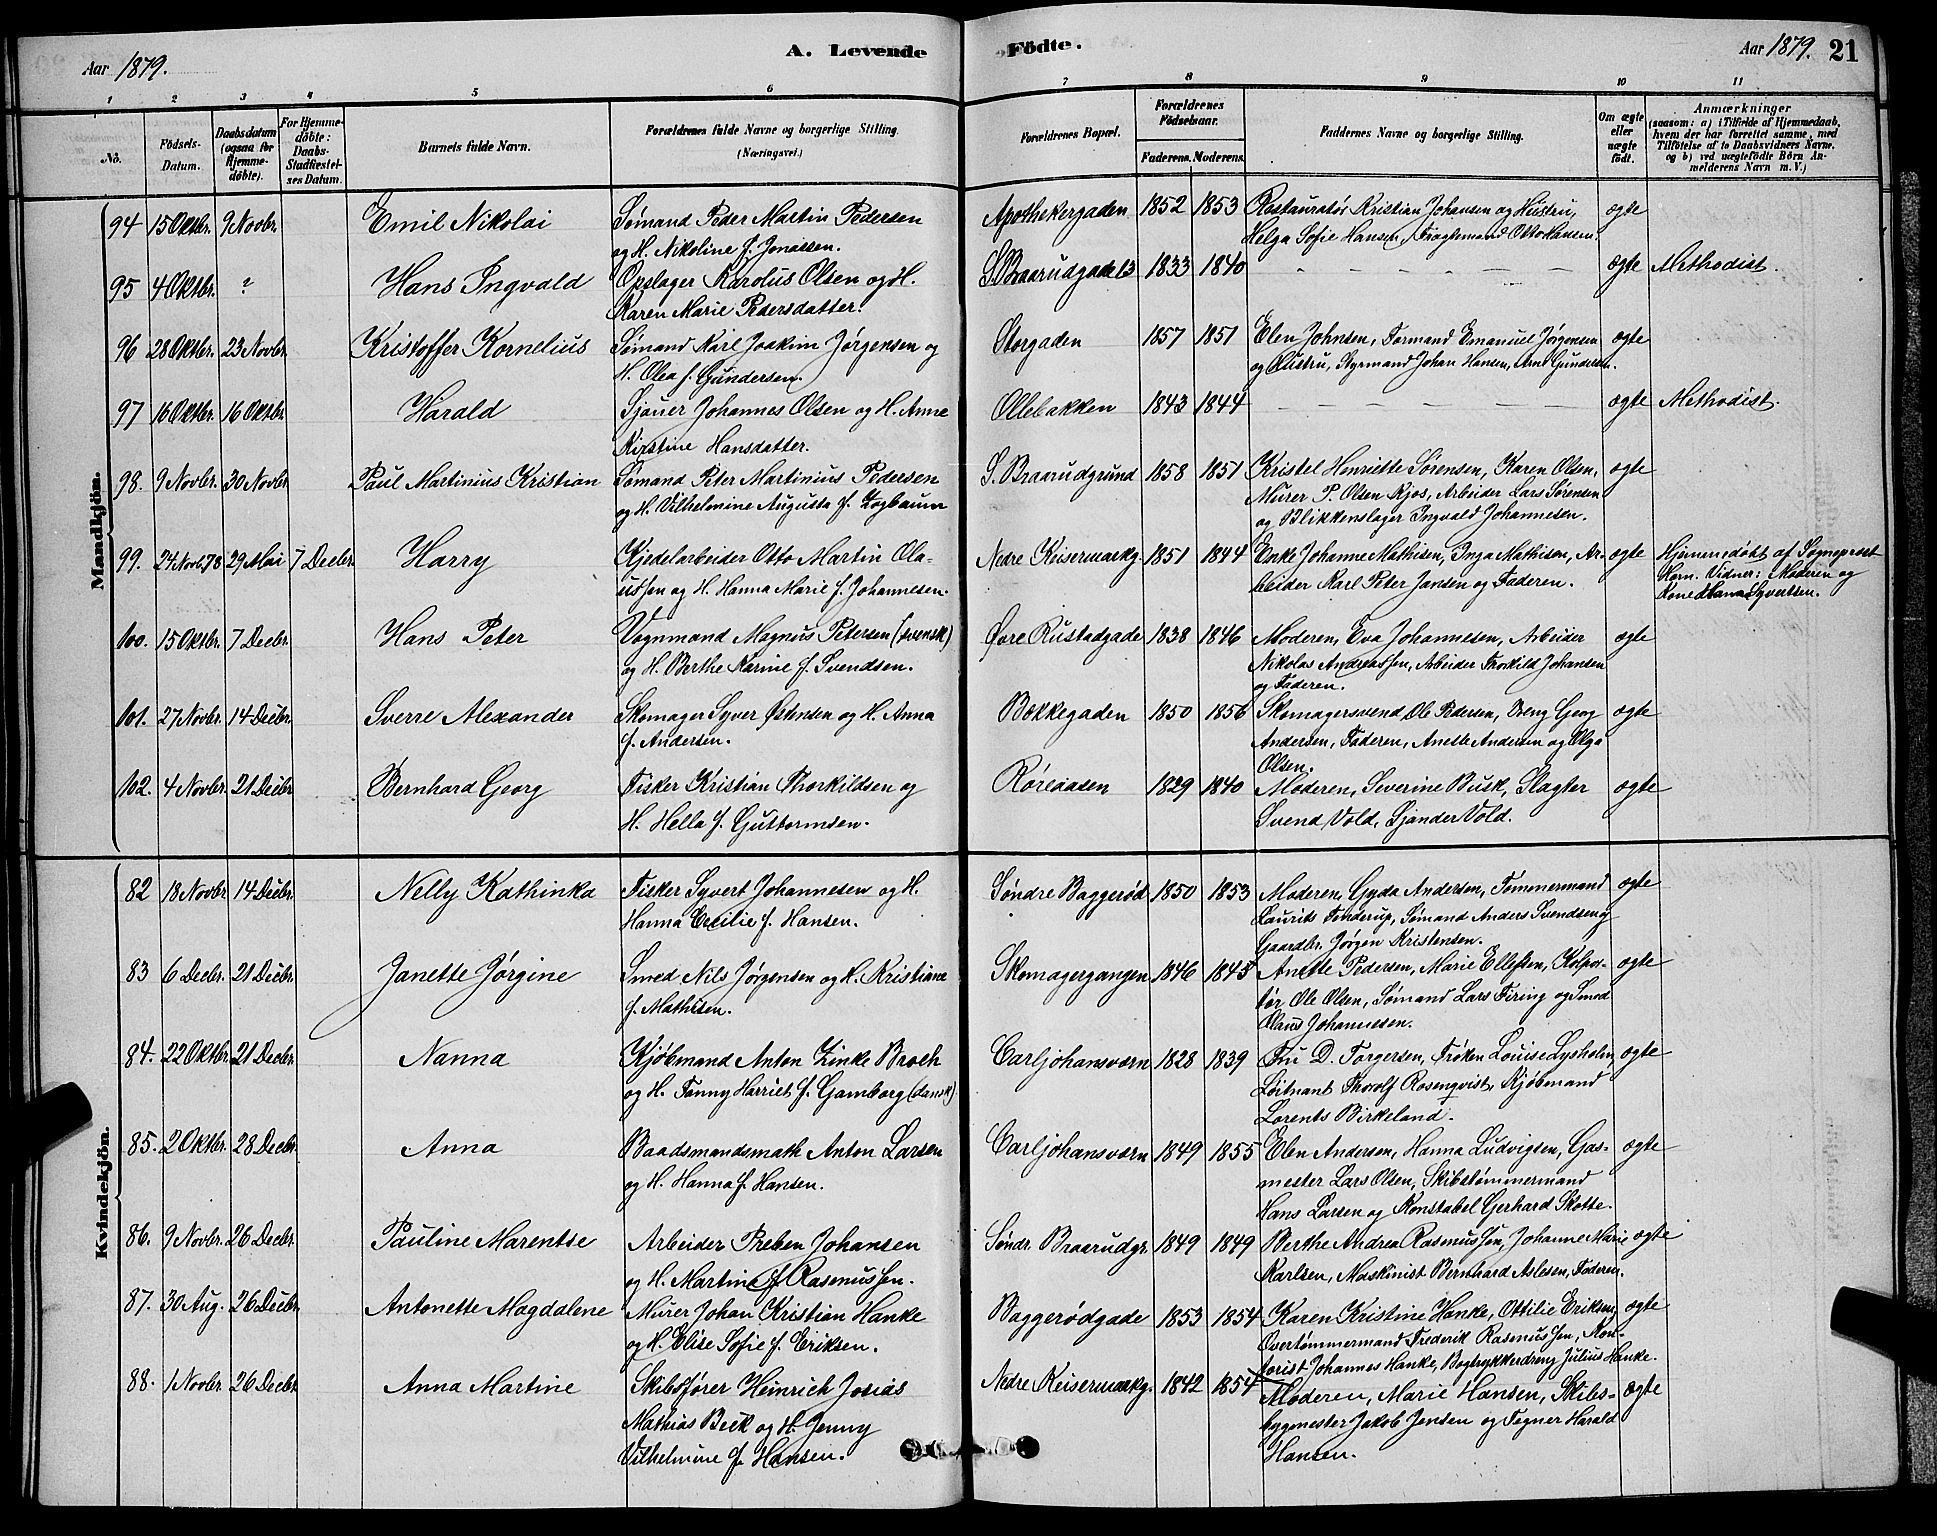 Aar 1879.
A. Levende Födte.
Aar 1879. 21
1 2 3 4 5 6 7 8 9 10 11
No.
Födsels-Datum.
Daabsdatum (ogsaa for Hjemme-döbte).
For Hjemme-döbte: Daabs-Stadfæstel-ses Datum.
Barnets fulde Navn.
Forældrenes fulde Navne og borgerlige Stilling.
(Næringsvei.)
Forældrenes Bopæl.
Forældrenes Födselsaar.
Faderens. Moderens.
Faddernes Navne og borgerlige Stilling.
Om ægte eller uægte födt.
Anmærkninger
(saasom: a) i Tilfælde af Hjemmedaab, hvem der har forrettet samme, med Tilföielse af to Daabsvidners Navne, og b) ved uægtefödte Börn An-melderens Navn m. V.)
Mandkjön.
94 15 Oktbr. 9 Novbr. Emil Nikolai Sømand Peder Martin Pedersen Apothekergaden 1852 1853 Restauratør Kristian Johansen og Hustru, ægte
og H. Nikoline f. Jonassen. Helga Sofie Hansen, Fragtemand Otto Hansen.
95 4 Oktbr. ? Hans Ingvald Opslager Karolus Olsen og H. S. Braarudgade 13 1833 1840 — — — — — — ægte Methodist.
Karen Marie Pedersdatter.
96 28 Oktbr. 23 Novbr. Kristoffer Kornelius Sømand Karl Joakim Jørgensen og Storgaden 1857 1851 Elen Johnsen, Formand Emanuel Jørgensen ægte
H. Olea f. Gundersen. og Hustru, Styrmand Johan Hansen, Arnt Gundersen.
97 16 Oktbr. 16 Oktbr. Harald Sjauer Johannes Olsen og H. Anne Ollebakken 1843 1844 — — — — — — ægte Methodist.
Kirstine Hansdatter.
98. 9 Novbr. 30 Novbr. Paul Martinius Kristian Sømand Peter Martinius Pedersen S. Braarudgrund 1858 1851 Kristel Henriette Sørensen, Karen Olsen, ægte
og H. Vilhelmine Augusta f. Zogbaum Murer P. Olsen Kjos, Arbeider Lars Sørensen
og Blikkenslager Ingvald Johannesen.
99. 24 Nov. 78 29 Mai 7 Decbr. Harry Kjedelarbeider Otto Martin Ola- Nedre Keisermarkg. 1851 1844 Enke Johanne Mathisen, Inga Mathisen, Ar- ægte Hjemmedøbt af Sogneprest
ussen og H. Hanna Marie f. Johannesen. beider Karl Peter Jansen og Faderen. Horn. Vidner: Moderen og
Kone Hanna Syvertsen.
100. 15 Oktbr. 7 Decbr. Hans Peter Vognmand Magnus Petersen (svensk) Øvre Rustadgade 1838 1846 Moderen, Eva Johannesen, Arbeider ægte
og H. Berthe Karine f. Svendsen. Nikolas Andreassen, Arbeider Torkild Johansen
og Faderen.
101. 27 Novbr. 14 Decbr. Sverre Alexander Skomager Syver Østensen og H. Anna Bokkegaden 1850 1856 Skomagersvend Ole Pedersen, Dreng Georg ægte
f. Andersen. Andersen, Faderen, Anette Andersen og Olga
Olsen.
102. 4 Novbr. 21 Decbr. Bernhard Georg Fisker Kristian Thorkildsen og Røreaasen 1829 1840 Moderen, Severine Busk, Slagter ægte
H. Hella f. Guttormsen. Svend Vold, Sjander Vold.
Kvindekjön.
82 18 Novbr. 14 Decbr. Nelly Kathinka Fisker Syvert Johannesen og H. Søndre Baggerød 1850 1853 Moderen, Gyda Andersen, Tømmermand ægte
Hanna Cecilie f. Hansen. Laurits Tonderup, Sømand Anders Svendsen og
Gaardbr. Jørgen Kristensen.
83 6 Decbr. 21 Decbr. Janette Jørgine Smed Nils Jørgensen og H. Kristiane Skomagergangen 1846 1845 Anette Pedersen, Marie Ellefsen, Kolpor- ægte
f. Mathisen. tør Ole Olsen, Sømand Lars Firing og Smed
Olaus Johannesen.
84. 22 Oktbr. 21 Decbr. Nanna Kjøbmand Anton Zinke Broch Carljohansværn 1828 1839 Fru D. Torgersen, Frøken Louise Lysholm, ægte
og H. Fanny Harriet f. Gamborg (dansk). Løitnant Thorolf Rosenqvist, Kjøbmand
Lorents Birkeland.
85. 2 Oktbr. 28 Decbr. Anna Baadsmandsmath Anton Larsen Carljohansværn 1849 1855 Elen Andersen, Hanna Ludvigsen, Gas- ægte
og H. Hanna f. Hansen. mester Lars Olsen, Skibstømmermand
Hans Larsen og Konstabel Gerhard Skotte.
86. 9 Novbr. 26 Decbr. Pauline Marentse Arbeider Preben Johansen Søndr. Braarudgr. 1849 1849 Berthe Andrea Rasmussen, Johanne Marie ægte
og H. Martina f. Rasmussen. Karlsen, Maskinist Bernhard Aslesen, Faderen.
87. 30 Aug. 26 Decbr. Antonette Magdalene Murer Johan Kristian Hanke Baggerødgade 1853 1854 Karen Kristine Hanke, Ottilie Eriksen, ægte
og H. Elise Sofie f. Eriksen. Overtømmermand Frederik Rasmussen, Kon-
torist Johannes Hanke, Bogtrykkerdreng Julius Hanke.
88. 1 Novbr. 26 Decbr. Anna Martine Skibsfører Heinrich Josias Nedre Keisermarkg. 1842 1854 Moderen, Marie Hansen, Skibs- ægte
Mathias Beck og H. Jenny bygmester Jakob Jensen og Tegner Harald
Vilhelmine f. Hansen. Hansen.